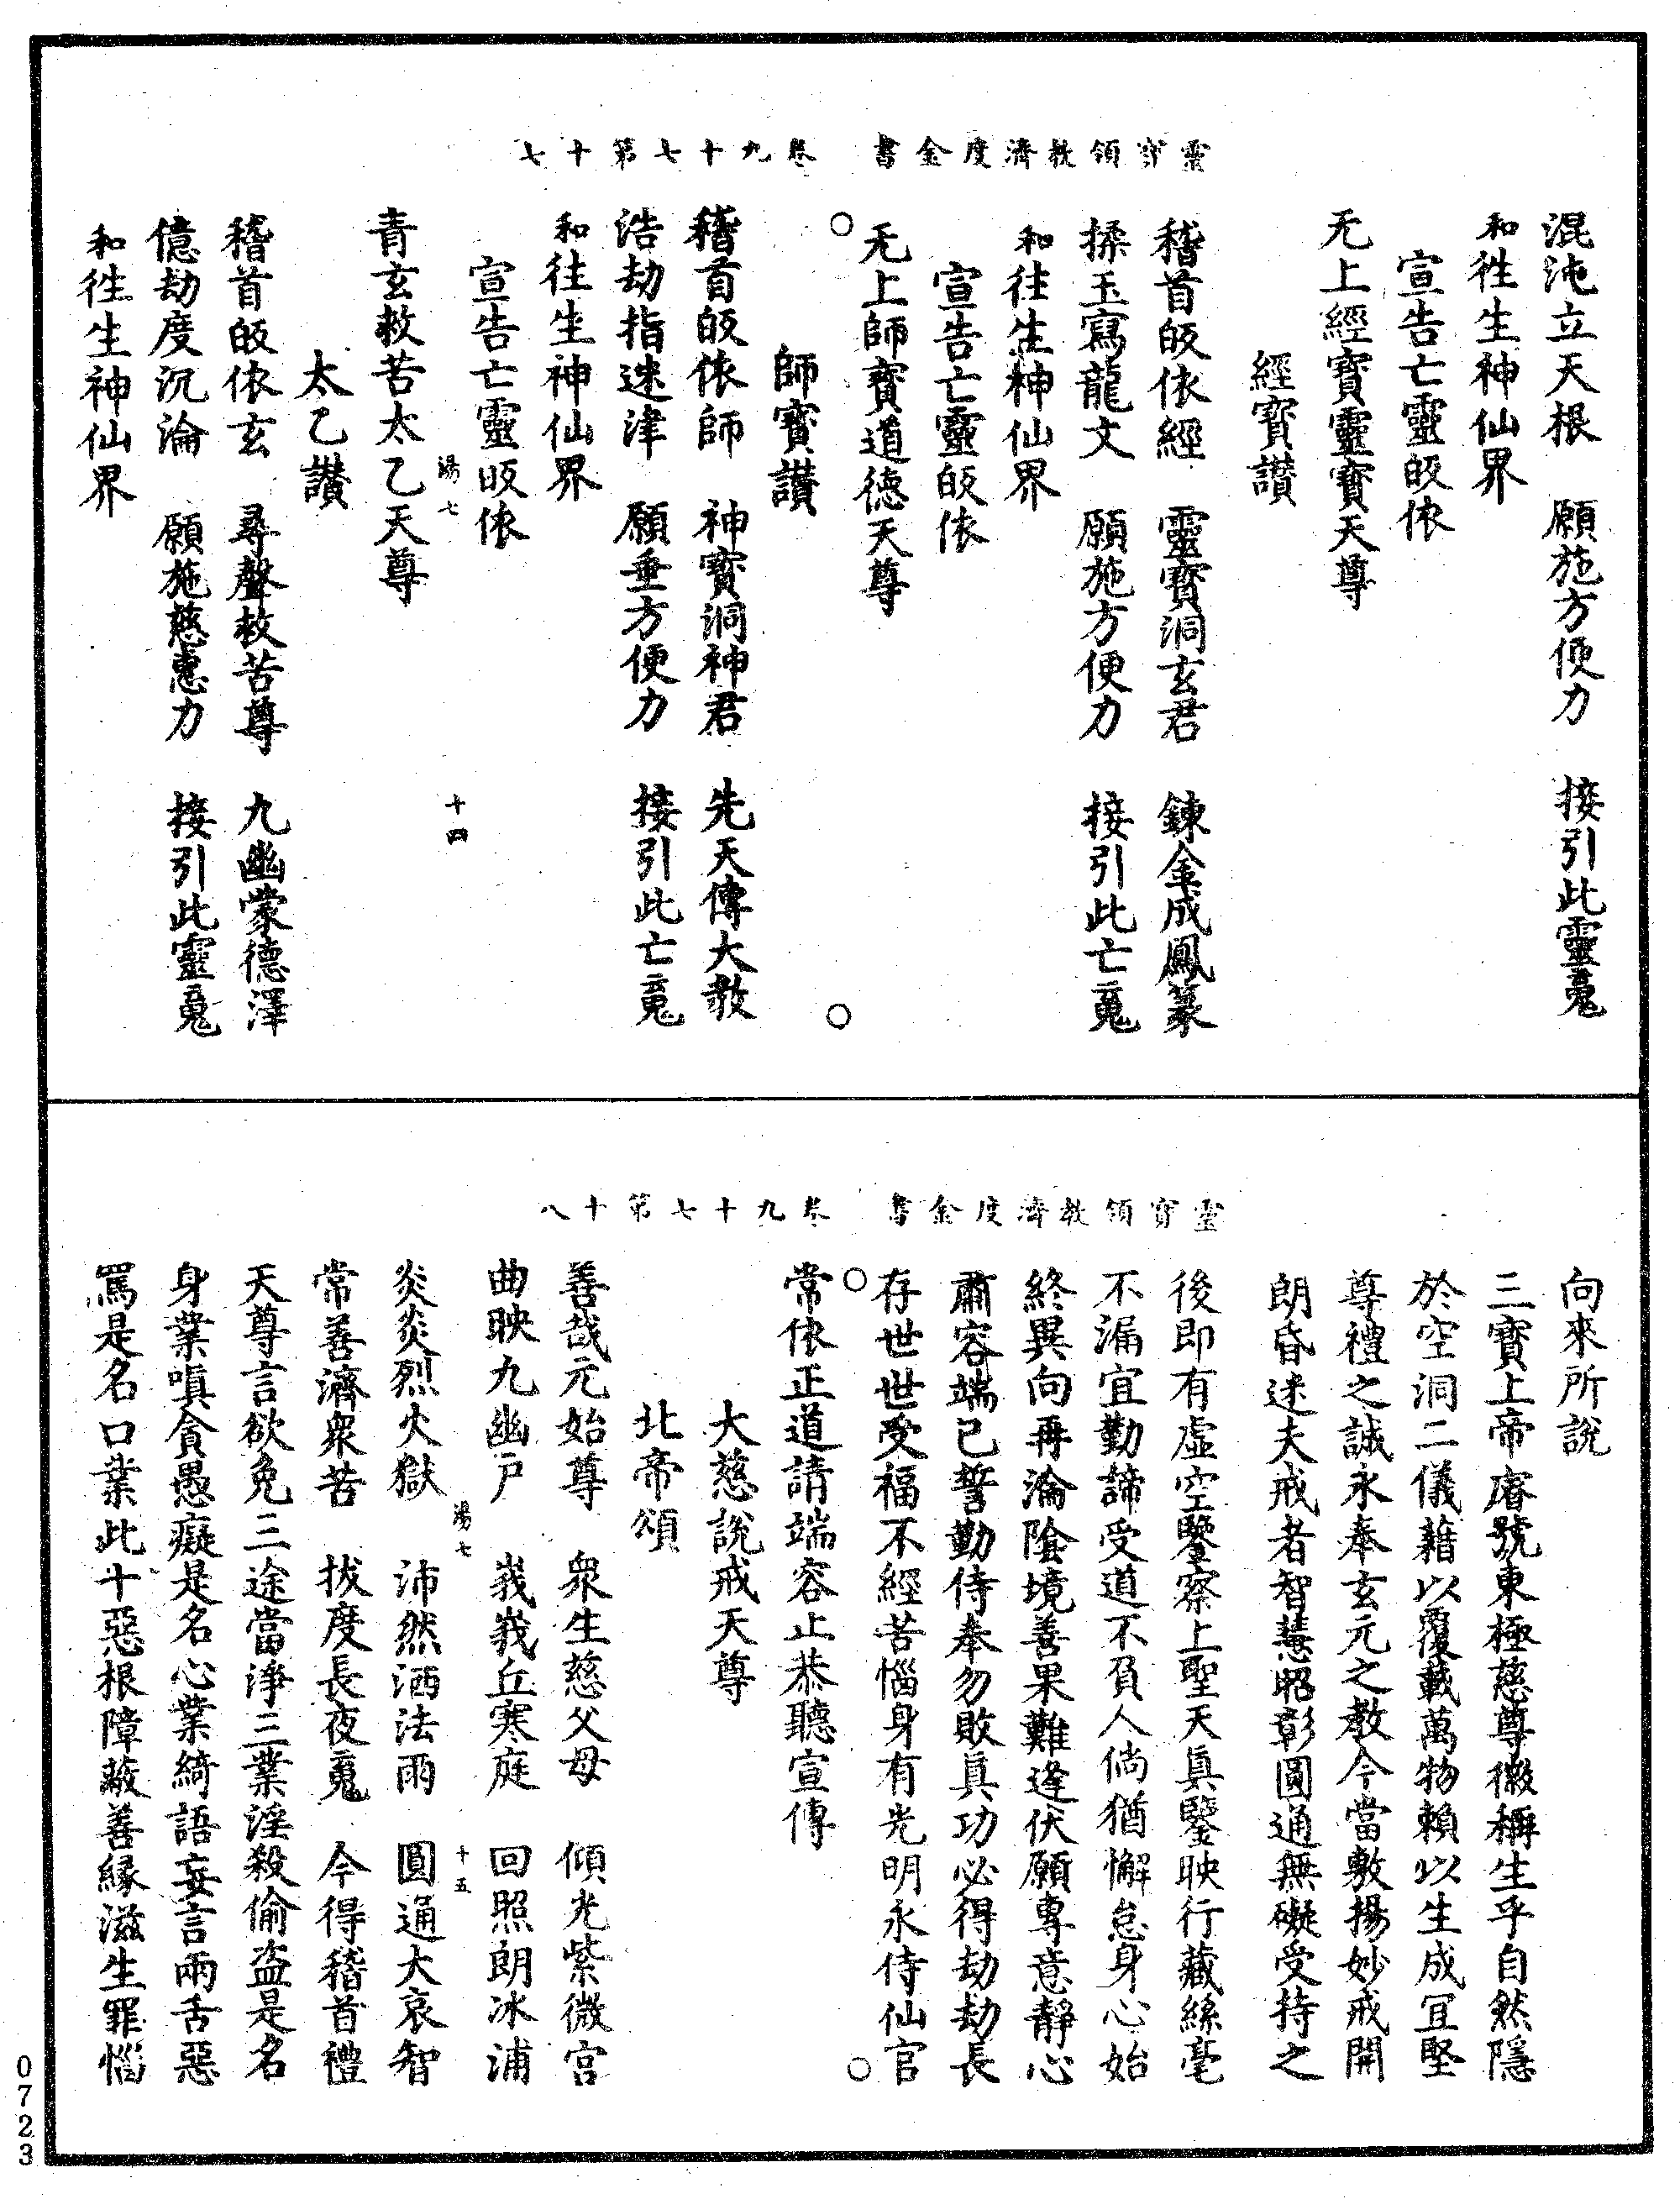 靈寶領教濟度金書　卷九十七第十七
混沌立天根　願施方便力　接引此靈䰟
和徃生神仙界
宣告亡靈皈依
无上經寶靈寶天尊
經寶讃
稽首皈依經　靈寶洞玄君　鍊金成鳳篆
揉玉寫龍文　願施方便力　接引此亡䰟
和往生神仙界
宣告亡靈皈依
无上師寶道德天尊
師寶讃
稽首皈依師　神寶洞神君　先天傳大教
浩劫指迷津　願垂方便力　接引此亡䰟
和往生神仙界
宣告亡靈皈依
湯七　十四
青玄救苦太乙天尊
太乙讃
稽首皈依玄　尋聲救苦尊　九幽蒙德澤
億劫度沉淪　願施慈惠力　接引此靈䰟
和徃生神仙界
靈寶領教濟度金書　卷九十七第十八
向來所說
三寶上帝睿號東極慈尊徽稱生乎自然隱
於空洞二儀藉以覆載萬物賴以生成冝堅
尊禮之誠永奉玄元之教今當敷揚妙戒開
朗昏迷夫戒者智慧昭彰圓通無礙受持之
後即有虛空鑒察上聖天真鑒映行藏絲毫
不漏宜勤諦受道不負人倘猶懈怠身心始
終異向再淪陰境善果難逢伏願專意靜心
肅容端己誓勤侍奉勿敗真功必得劫劫長
存世世受福不經苦惱身有光明永侍仙官
常依正道請端容止恭聽宣傳
大慈說戒天尊
北帝頌
善哉元始尊　衆生慈父母　傾光紫微宮
曲映九幽戶　峩峩丘寒庭　回照朗冰浦
湯七　十五
炎炎烈火獄　沛然洒法雨　圓通大哀智
常善濟衆苦　拔度長夜䰟　今得稽首禮
天尊言欲免三途當淨三業淫殺偷盜是名
身業嗔貪愚癡是名心業綺語妄言兩舌惡
罵是名口業此十惡根障蔽善緣滋生罪惱
0723